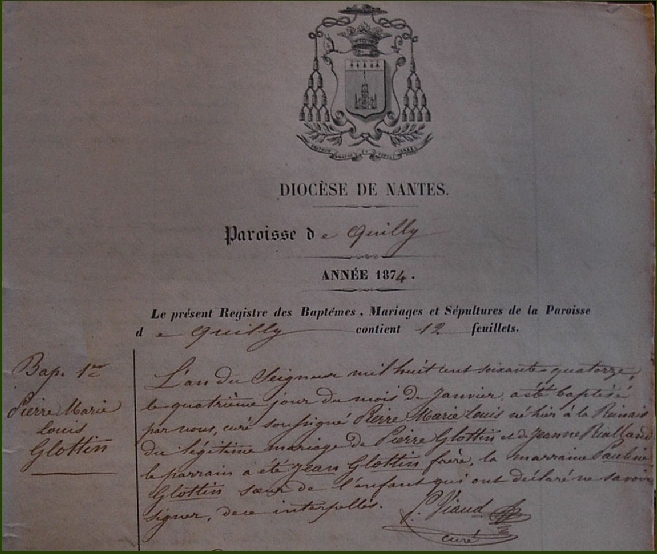 DIOCÈSE DE NANTES.
Paroisse de Quilly
ANNÉE 1874.
Le présent Registre des Baptêmes, Mariages et Sépultures de la Paroisse
de Quilly contient 12 feuillets.
Bap. 1er
Pierre Marie
Louis
Glottin
L'an du Seigneur mil huit cent soixante-quatorze
le quatrième jour du mois de Janvier, a été baptisé
par nous, curé soussigné Pierre Marie Louis né hier à le
du légitime mariage de Pierre Glottin et de Jeanne
le parrain a été Jean Glottin frère, la marraine
Glottin sœur de l'enfant qui ont déclaré ne savoir
signer, de ce interpellés. Viaud
curé